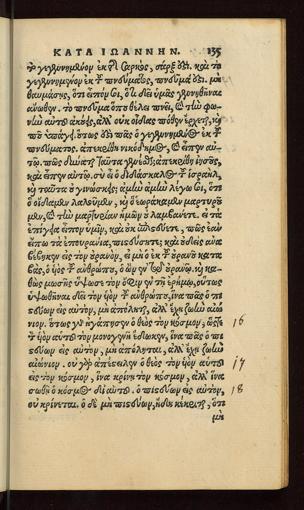 ΚΑΤΑ ΙΩΑΝΝΗΝ. 135
τὸ γεγεννημένον ἐκ τῆς σαρκός, σάρξ ἐστι. καὶ τὸ
γεγεννημένον ἐκ τοῦ πνεύματος, πνεῦμά ἐστι. μὴ
θαυμάσῃς, ὅτι εἶπόν σοι, ὅτι δεῖ ὑμᾶς γεννηθῆναι
ἄνωθεν. τὸ πνεῦμα ὅπου θέλει πνεῖ, καὶ τὴν φω-
νὴν αὐτοῦ ἀκούεις, ἀλλ' οὐκ οἶδας πόθεν ἔρχεται, καὶ
ποῦ ὑπάγει. οὕτως ἐστὶ πᾶς ὁ γεγεννημένος ἐκ τοῦ
πνεύματος. ἀπεκρίθη νικόδημος, καὶ εἶπεν αὐ-
τῷ. πῶς δύναται ταῦτα γενέσθαι; ἀπεκρίθη ἰησοῦς,
καὶ εἶπεν αὐτῷ. σὺ εἶ ὁ διδάσκαλος τοῦ ἰσραήλ,
καὶ ταῦτα οὐ γινώσκεις; ἀμὴν ἀμὴν λέγω σοι, ὅτι
ὃ οἴδαμεν λαλοῦμεν, καὶ ὃ ἑωράκαμεν μαρτυροῦ
μεν, καὶ τὴν μαρτυρίαν ἡμῶν οὐ λαμβάνετε. εἰ τὰ
ἐπίγεια εἶπον ὑμῖν, καὶ οὐ πιστεύετε, πῶς ἐὰν
εἴπω τὰ ἐπουράνια, πιστεύσητε; καὶ οὐδεὶς ἀνα
βέβηκεν εἰς τὸν οὐρανόν, εἰ μὴ ὁ ἐκ τοῦ οὐρανοῦ κατα
βάς, ὁ υἱὸς τοῦ ἀνθρώπου, ὁ ὢν ἐν τῷ οὐρανῷ. καὶ κα-
θὼς μωσῆς ὕψωσε τὸν ὄφιν ἐν τῇ ἐρήμῳ, οὕτως
ὑψωθῆναι δεῖ τὸν υἱὸν τοῦ ἀνθρώπου, ἵνα πᾶς ὁ πι
στεύων εἰς αὐτόν, μὴ ἀπόληται, ἀλλ' ἔχῃ ζωὴν αἰώ
νιον. οὕτως γὰρ ἠγάπησεν ὁ θεὸς τὸν κόσμον, ὥστε 16
τὸν υἱὸν αὐτοῦ τὸν μονογενῆ ἔδωκεν, ἵνα πᾶς ὁ πι
στεύων εἰς αὐτόν, μὴ ἀπόληται, ἀλλ' ἔχῃ ζωὴν
αἰώνιον. οὐ γὰρ ἀπέστειλεν ὁ θεὸς τὸν υἱὸν αὐτοῦ 17
εἰς τὸν κόσμον, ἵνα κρίνῃ τὸν κόσμον, ἀλλ' ἵνα
σωθῇ ὁ κόσμος δι' αὐτοῦ. ὁ πιστεύων εἰς αὐτόν, 18
οὐ κρίνεται. ὁ δὲ μὴ πιστεύων, ἤδη κέκριται, ὅτι
μὴ